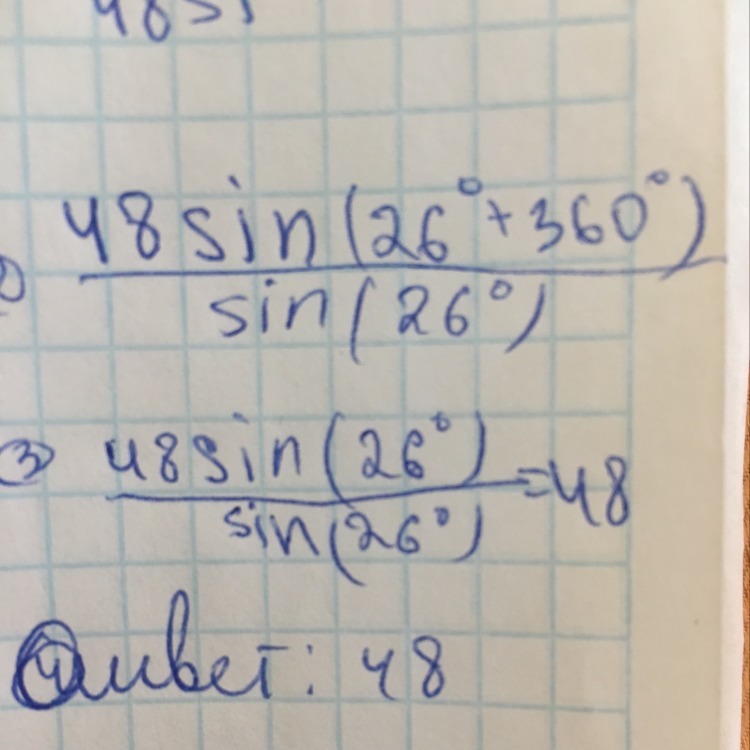 48 sin(26°+360°)
sin(26°)
③ 48 sin(26°)
sin(26°)
=48
ответ: 48